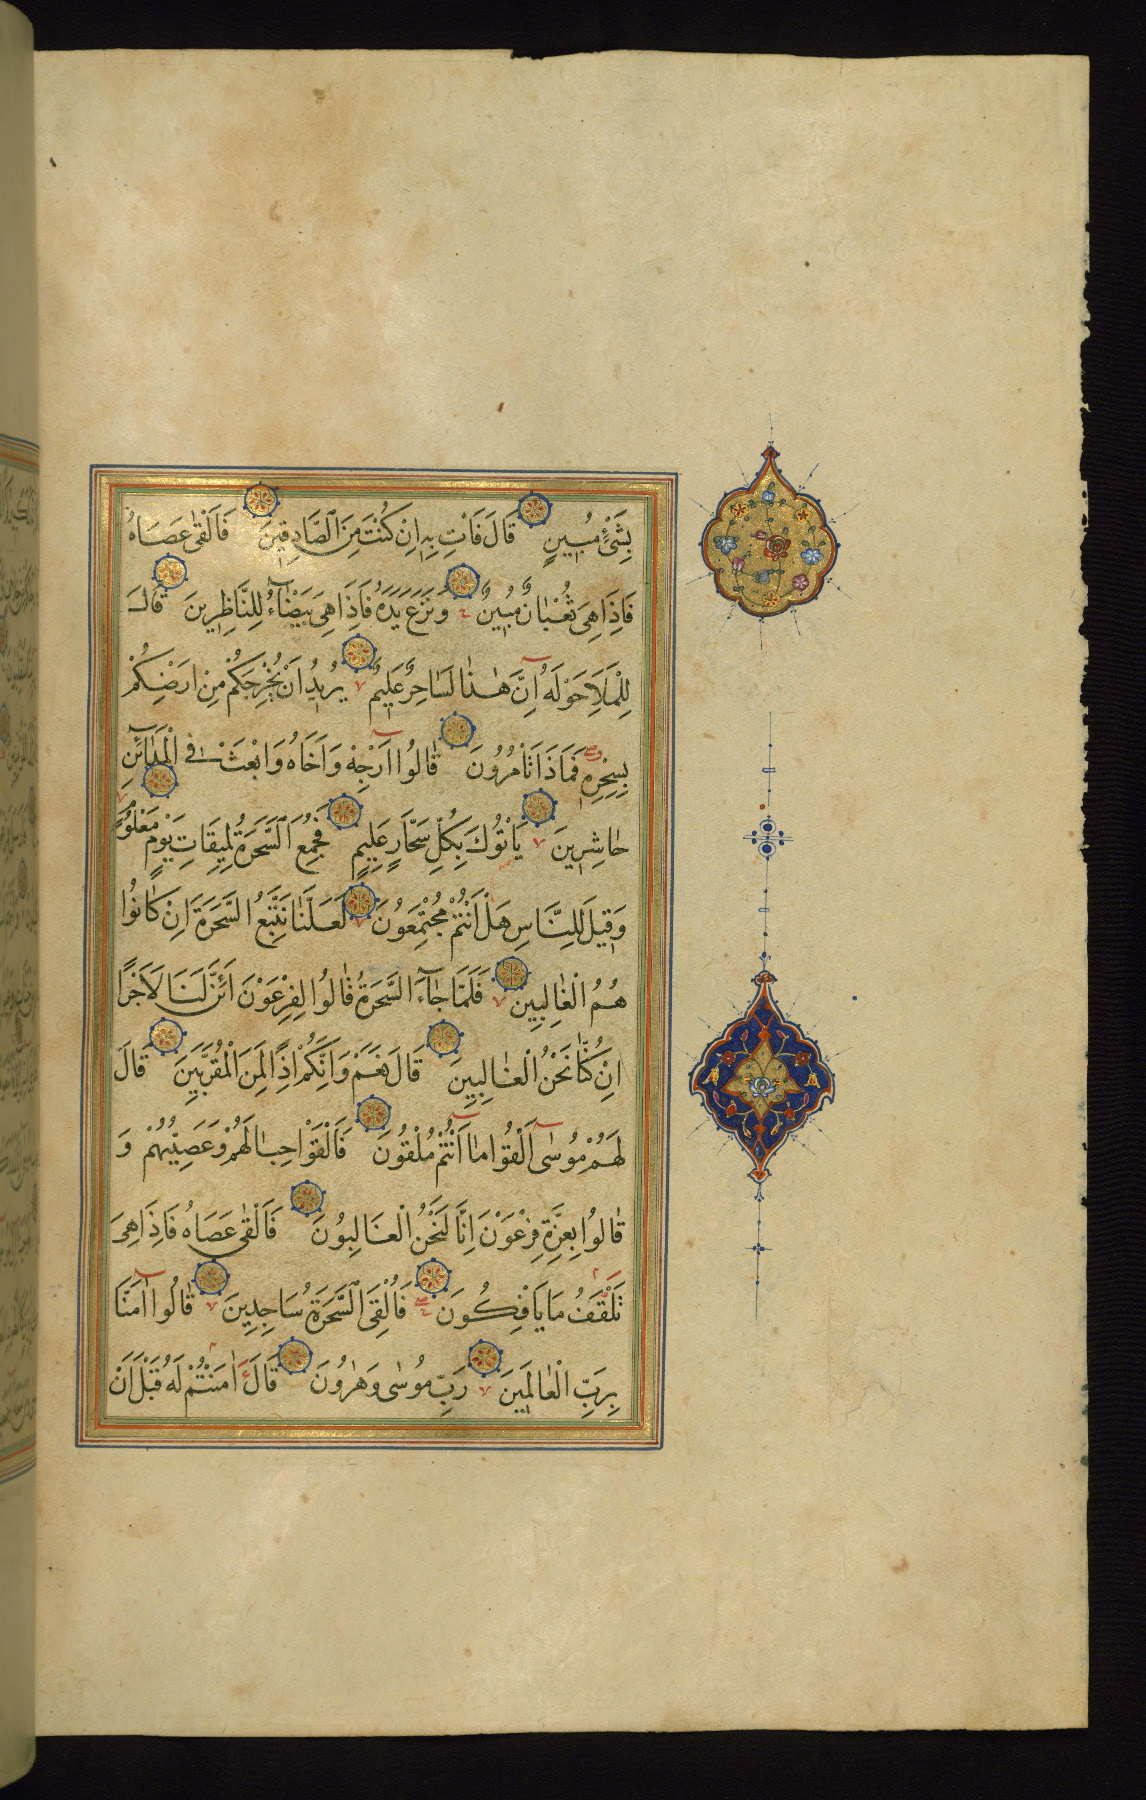 بِشَىْءٍ مُبِينٍ قَالَ فَأْتِ بِهِ اِنْ كُنْتَ مِنَ الصَّادِقِينَ فَاَلْقٰى عَصَاهُ
فَاِذَا هِىَ ثُعْبَانٌ مُبِينٌ وَنَزَعَ يَدَهُ فَاِذَا هِىَ بَيْضَآءُ لِلنَّاظِرِينَ قَالَ
لِلْمَلَاِ حَوْلَهُ اِنَّ هٰذَا لَسَاحِرٌ عَلِيمٌ يُرِيدُ اَنْ يُخْرِجَكُمْ مِنْ اَرْضِكُمْ
بِسِحْرِهِ فَمَاذَا تَأْمُرُونَ قَالُوا اَرْجِهْ وَاَخَاهُ وَابْعَثْ فِى الْمَدَآئِنِ
حَاشِرِينَ يَأْتُوكَ بِكُلِّ سَحَّارٍ عَلِيمٍ فَجُمِعَ السَّحَرَةُ لِمِيقَاتِ يَوْمٍ مَعْلُومٍ
وَقِيلَ لِلنَّاسِ هَلْ اَنْتُمْ مُجْتَمِعُونَ لَعَلَّنَا نَتَّبِعُ السَّحَرَةَ اِنْ كَانُوا
هُمُ الْغَالِبِينَ فَلَمَّا جَآءَ السَّحَرَةُ قَالُوا لِفِرْعَوْنَ اَئِنَّ لَنَا لَاَجْرًا
اِنْ كُنَّا نَحْنُ الْغَالِبِينَ قَالَ نَعَمْ وَاِنَّكُمْ اِذًا لَمِنَ الْمُقَرَّبِينَ قَالَ
لَهُمْ مُوسٰى اَلْقُوا مَا اَنْتُمْ مُلْقُونَ فَاَلْقَوْا حِبَالَهُمْ وَعَصِيَّهُمْ وَ
قَالُوا بِعِزَّةِ فِرْعَوْنَ اِنَّا لَنَحْنُ الْغَالِبُونَ فَاَلْقٰى عَصَاهُ فَاِذَا هِىَ
تَلْقَفُ مَا يَأْفِكُونَ فَاُلْقِىَ السَّحَرَةُ سَاجِدِينَ قَالُوا اٰمَنَّا
بِرَبِّ الْعَالَمِينَ رَبِّ مُوسٰى وَهٰرُونَ قَالَ ءَاٰمَنْتُمْ لَهُ قَبْلَ اَنْ